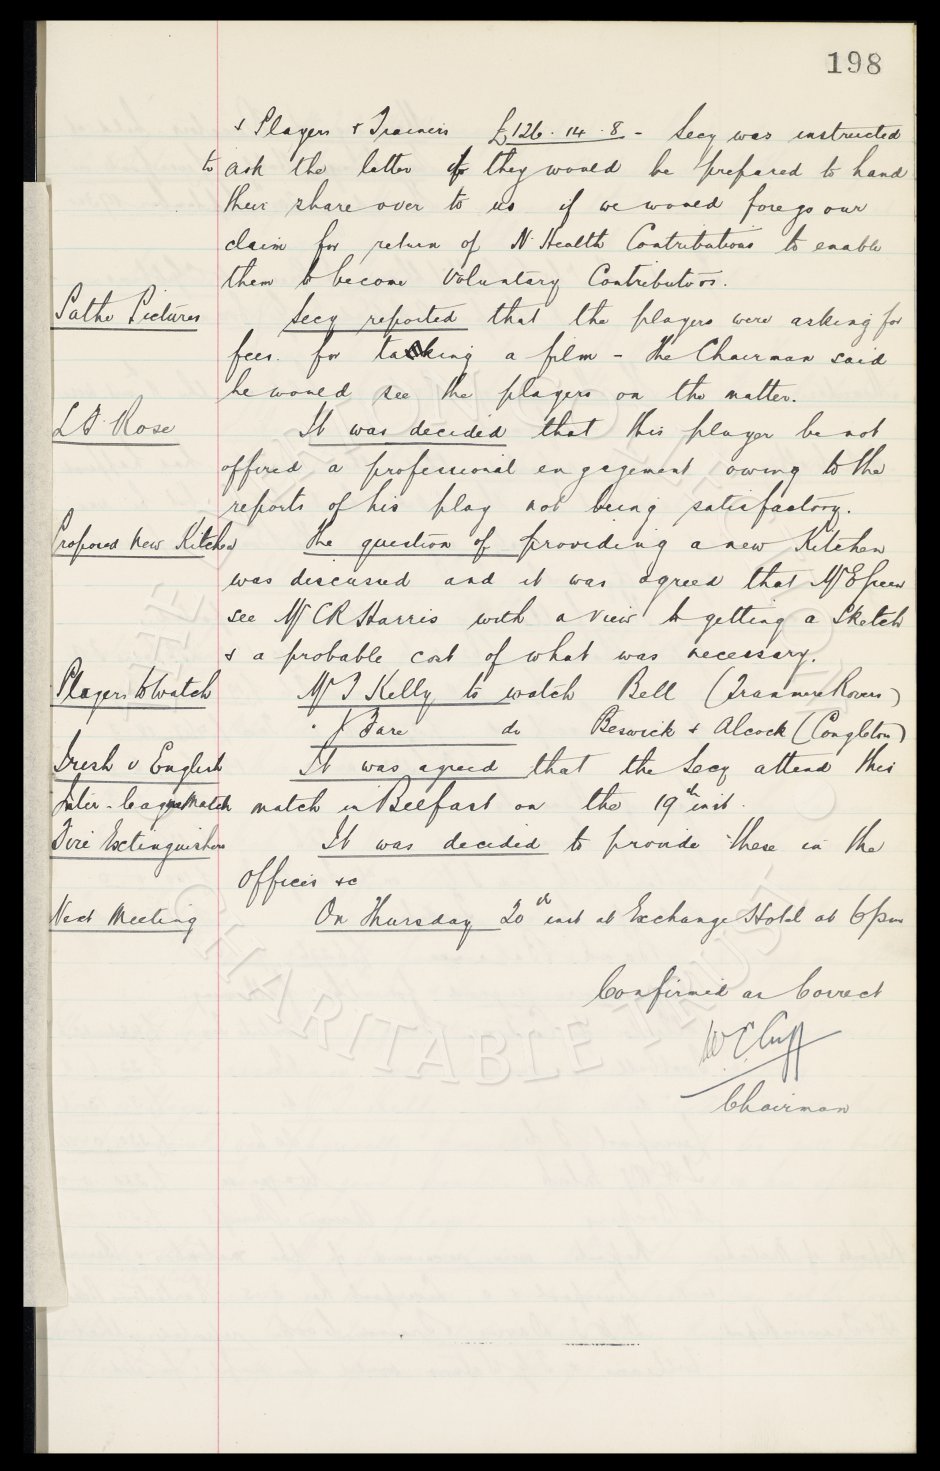 198
& Players & Trainers £126.14.8 - Secy was instructed
to ask the latter if they would be prepared to hand
their share over to us if we would forego our
claim for return of N. Health Contributions to enable
them to become Voluntary Contributors.
Pathe Pictures Secy reported that the players were asking for
fees. for taking a film - the Chairman said
he would see the players on the matter.
Rose It was decided that this player be not
offered a professional engagement owing to the
reports of his play not being satisfactory.
Proposed New Kitchen The question of providing a new Kitchen
was discussed and it was agreed that Mr E Green
see Mr C R Harris with a view to getting a Sketch
& a probable cost of what was necessary.
Players to Watch Mr T Kelly to watch Bell (Tranmere Rovers)
" J Fare do Beswick & Alcock (Congleton)
Irish v English It was agreed that the Secy attend this
Inter-league Match match in Belfast on the 19th inst.
Fire Extinguishers It was decided to provide these in the
Offices &c
Next Meeting On Thursday 20th inst at Exchange Hotel at 6pm
Confirmed as Correct
W. C. Cuff
Chairman
CHARITABLE TRUST